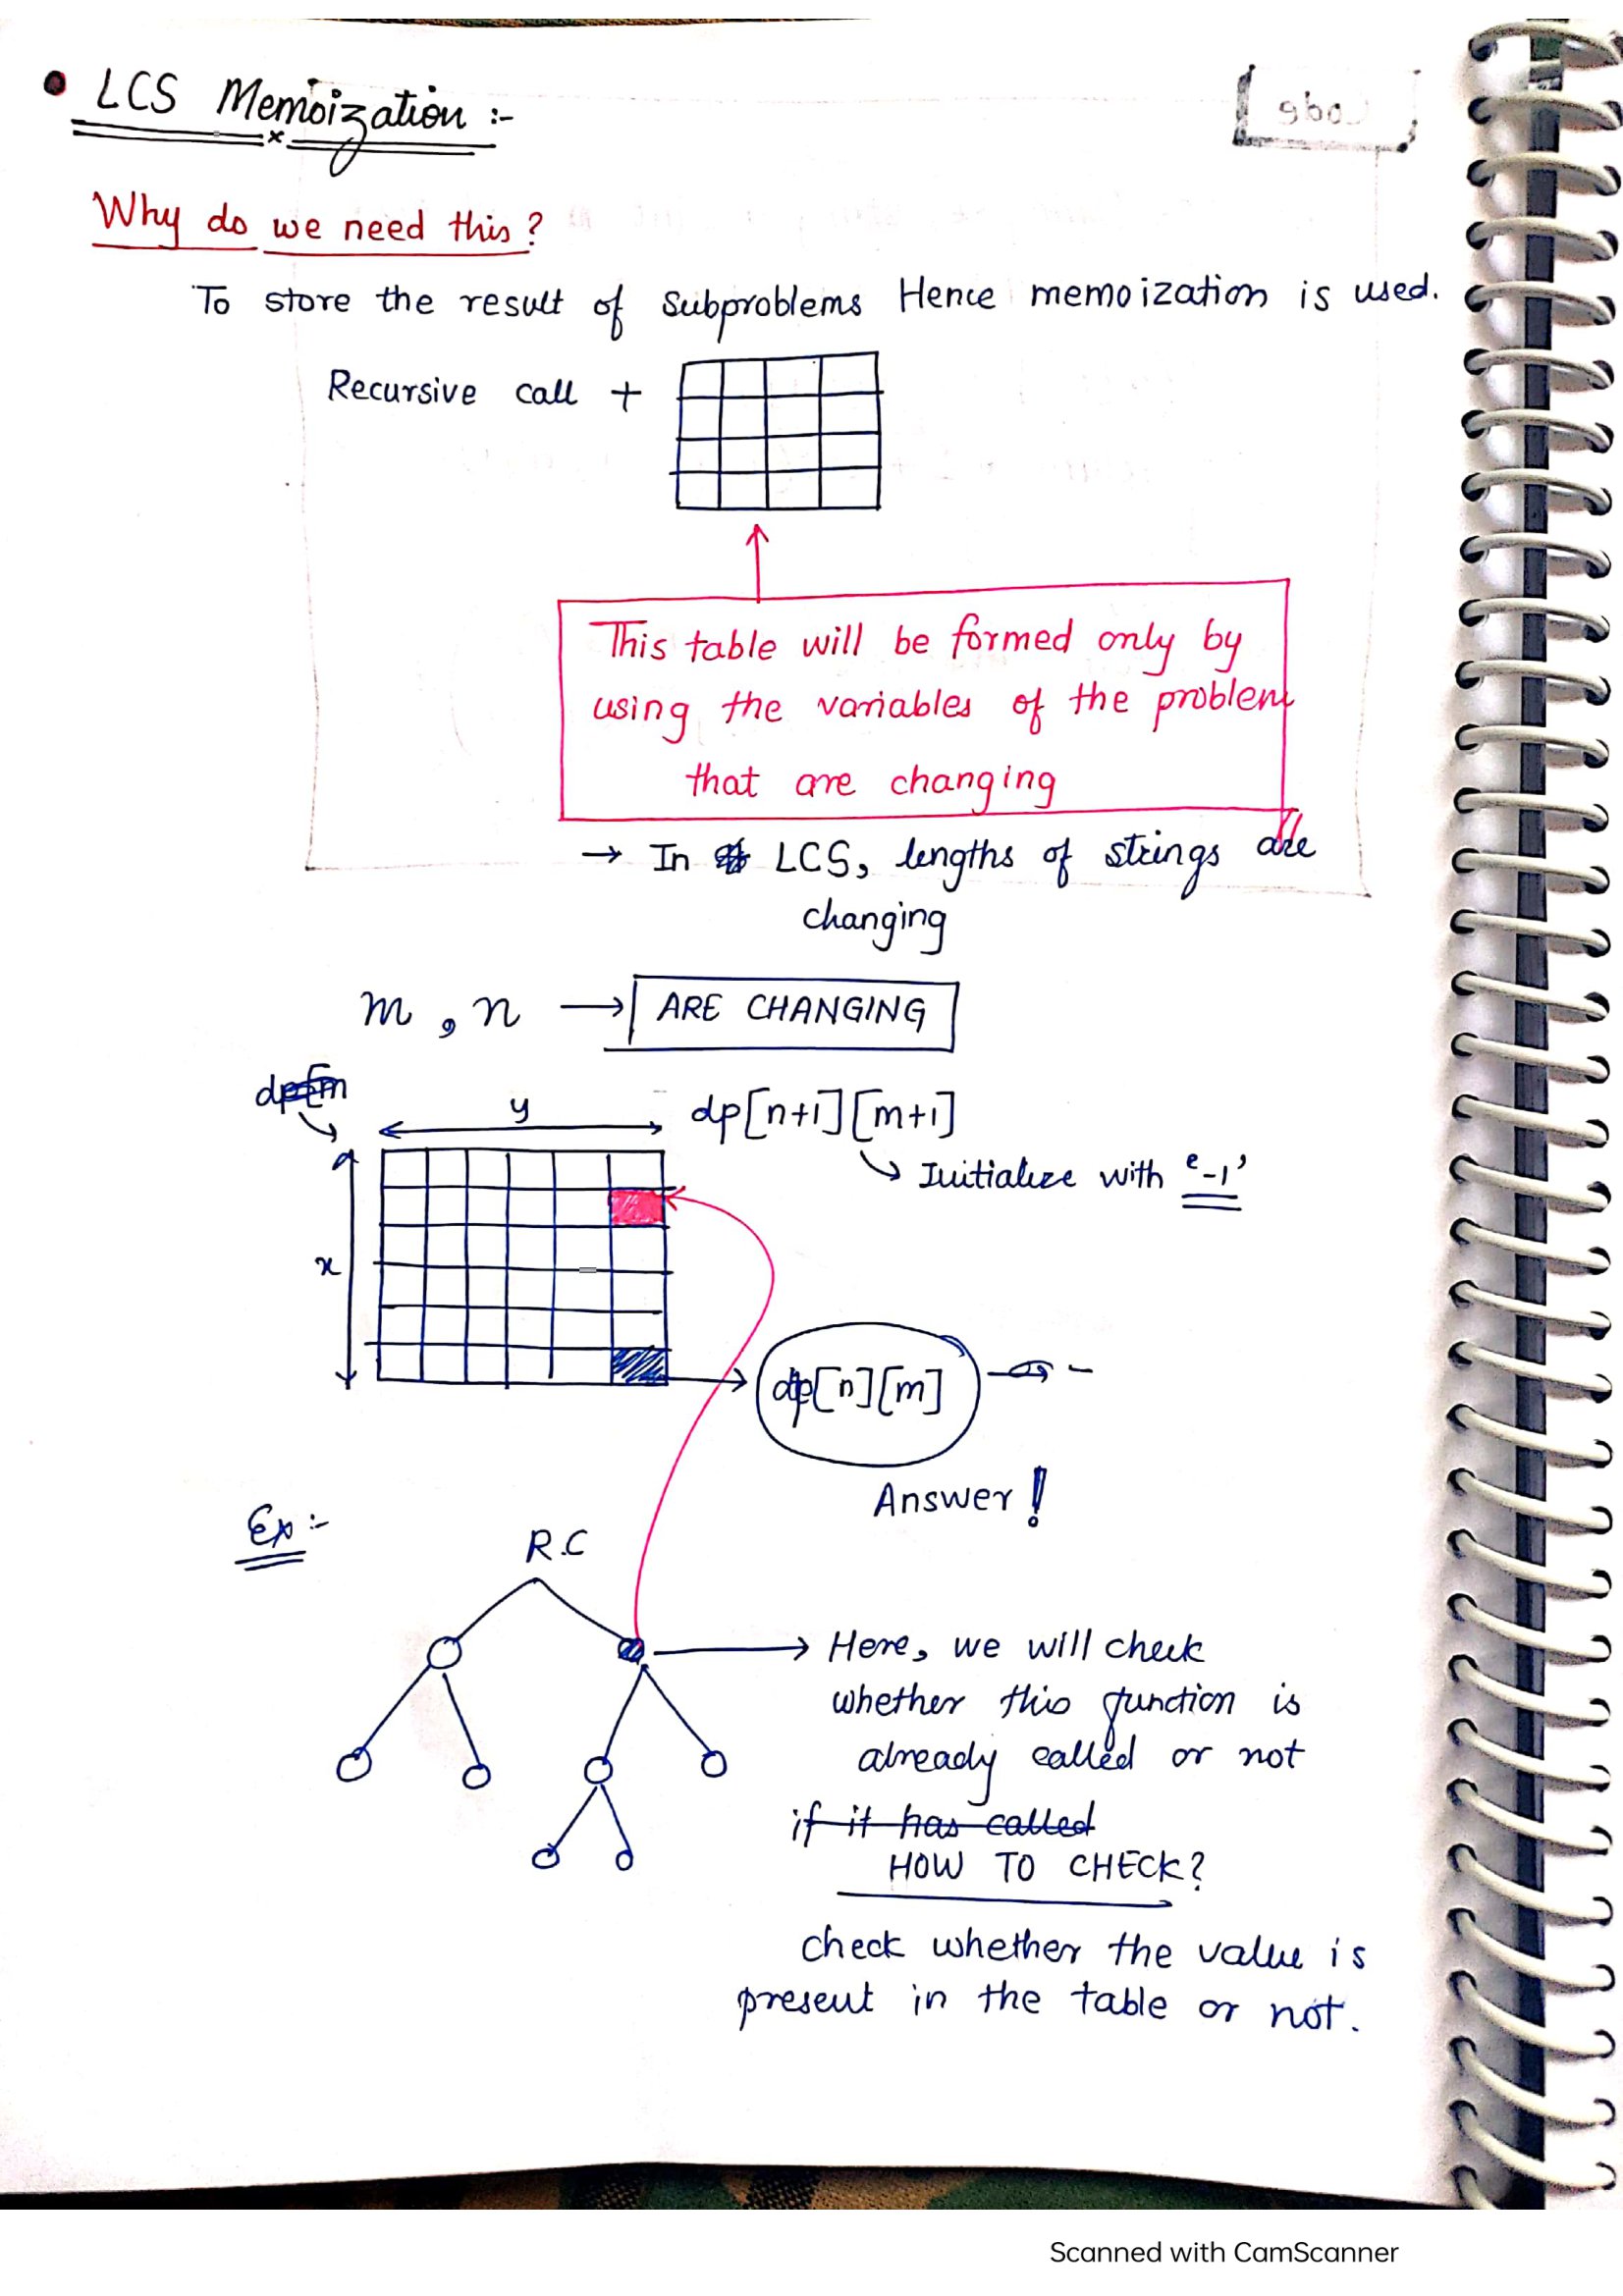 • LCS Memoization :-
Why do we need this?
To store the result of subproblems Hence memoization is used.
Recursive call +
This table will be formed only by
using the variables of the problem
that are changing
→ In LCS, lengths of strings are
changing
m , n → ARE CHANGING
dp[m
y
dp[n+1][m+1]
Initialize with '-1'
x
dp[n][m]
Answer!
Ex :-
R.C
Here, we will check
whether this function is
already called or not
if it has called
HOW TO CHECK?
check whether the value is
present in the table or not.
Scanned with CamScanner